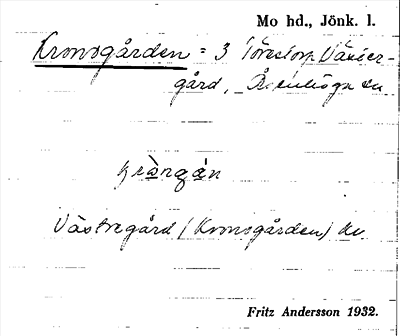 Mo hd., Jönk. l.
Kronsgården = 3 Törestorp Väster-
gård, Åsenhöga sn
krɑ̀nsgɑ́n
Västregård (Kronsgården) hr.
Fritz Andersson 1932.